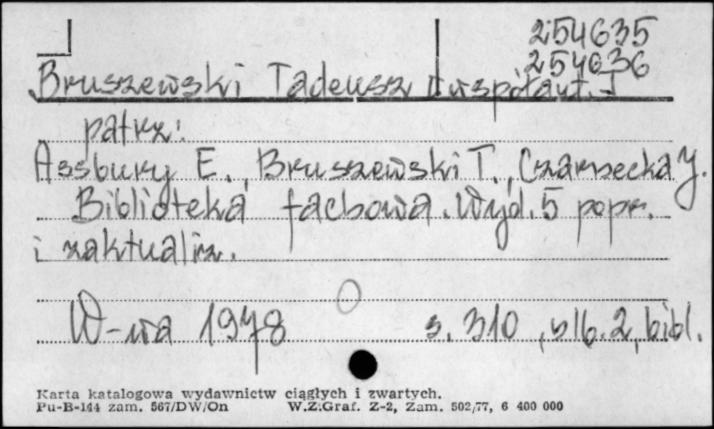 254635
254636
Bruszewski Tadeusz [współaut.]
patrz:
Assbury E., Bruszewski T., Czarnecka J.
Biblioteka fachowa. Wyd. 5 popr.
i zaktualiz.
W-wa 1978 s. 310, slb. 2, bibl.
Karta katalogowa wydawnictw ciągłych i zwartych.
Pu-B-144 zam. 567/DW/On W.Z.Graf. Z-2, Zam. 502/77, 6 400 000